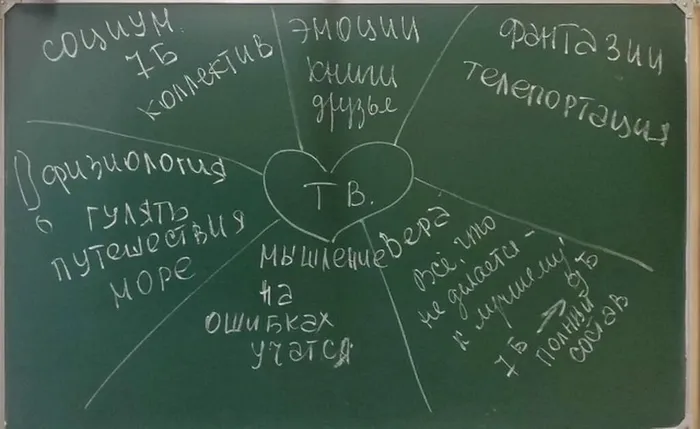 СОЦИУМ
7Б
КОЛЛЕКТИВ
ЭМОЦИИ
КНИГИ
ДРУЗЬЯ
ФАНТАЗИИ
ТЕЛЕПОРТАЦИЯ
ФИЗИОЛОГИЯ
ГУЛЯТЬ
ПУТЕШЕСТВИЯ
МОРЕ
Т В.
МЫШЛЕНИЕ
НА
ОШИБКАХ
УЧАТСЯ
ВЕРА
Всё, что
не делается -
к лучшему!
7Б → 9Б
ПОЛНЫЙ
СОСТАВ